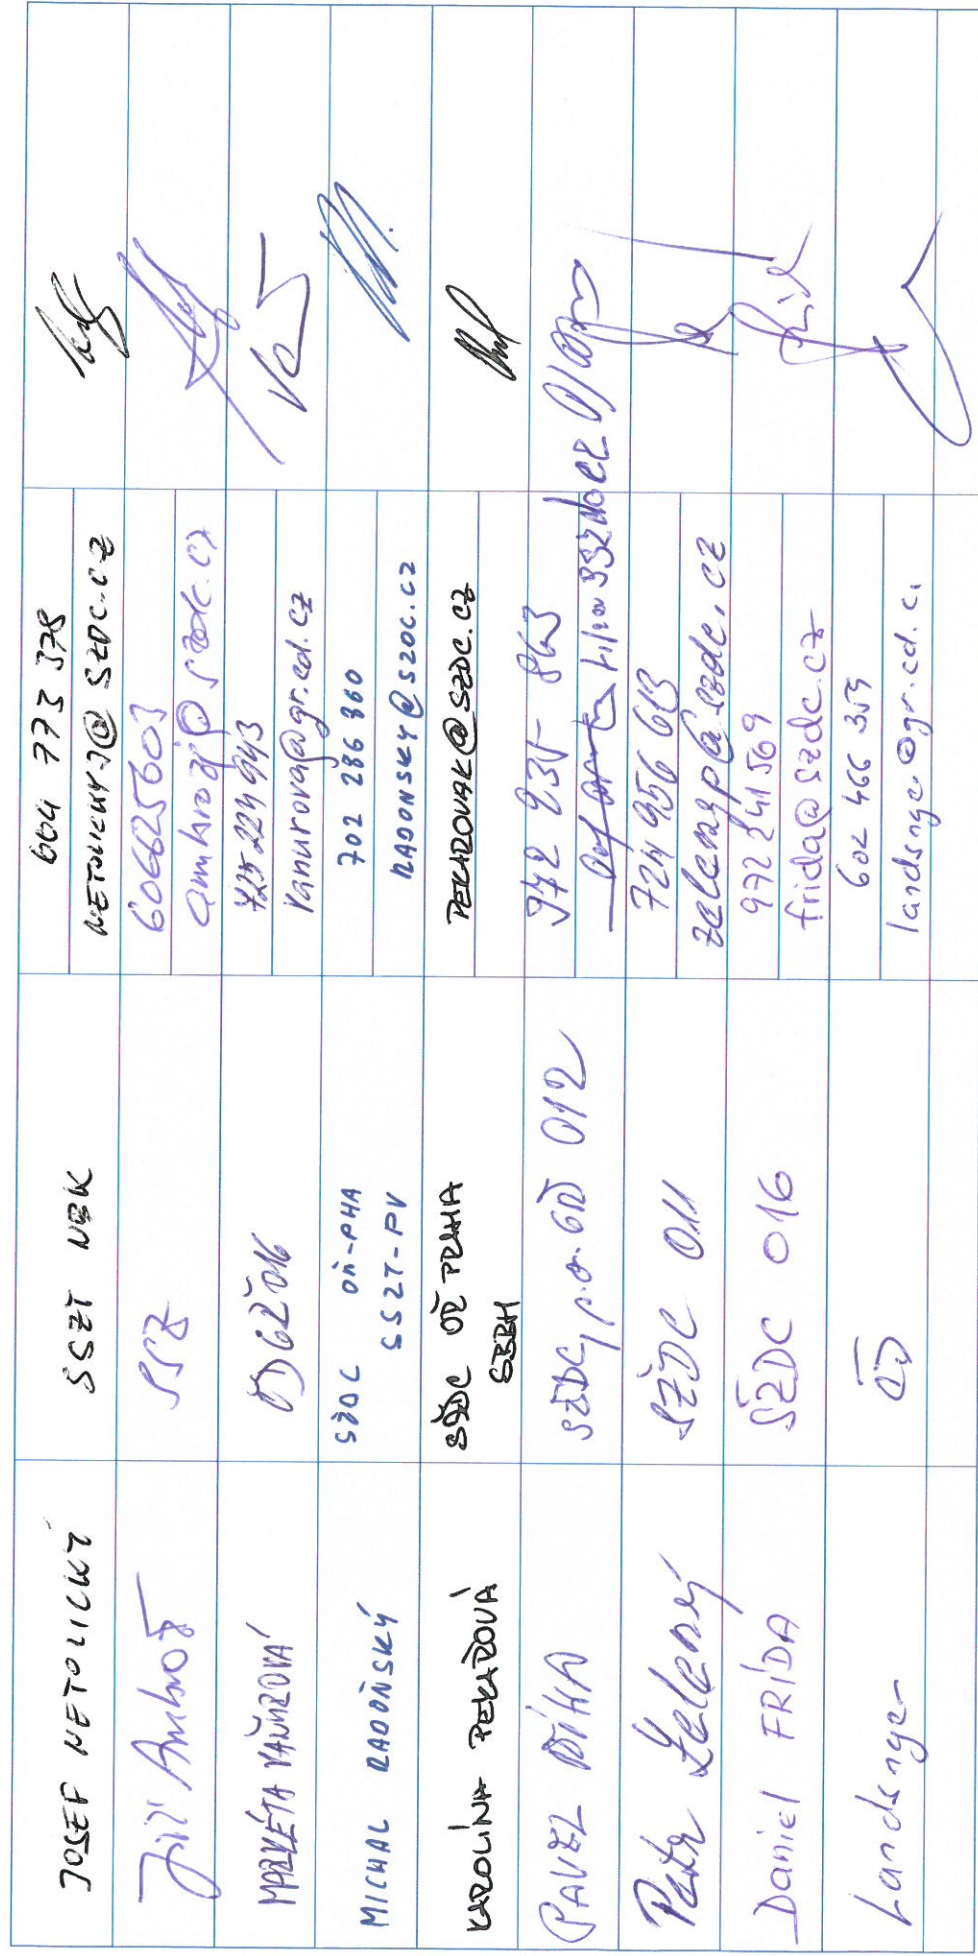 JOSEF NETOLICKÝ
SSZT NBK
604 773 378
NETOLICKYJ@SZDC.CZ
Jiří Ambrož
SSZ
606625603
ambrozj@szdc.cz
MARKÉTA VAŇUROVÁ
725 224 943
vanurova@gr.cd.cz
MICHAL RADOŇSKÝ
SŽDC OŘ-PHA
SSZT-PV
702 286 860
RADONSKY@SZDC.CZ
KAROLÍNA PEKAŘOVÁ
SŽDC OŘ PRAHA
PEKAROVAK@SZDC.CZ
PAVEL
SŽDC, 012
972 235 863
Petr Zelený
SŽDC 011
724 956 613
zelenyp@szdc.cz
Daniel FRÍDA
SŽDC 016
972 241 569
frida@szdc.cz
Landsnger
602 466 359